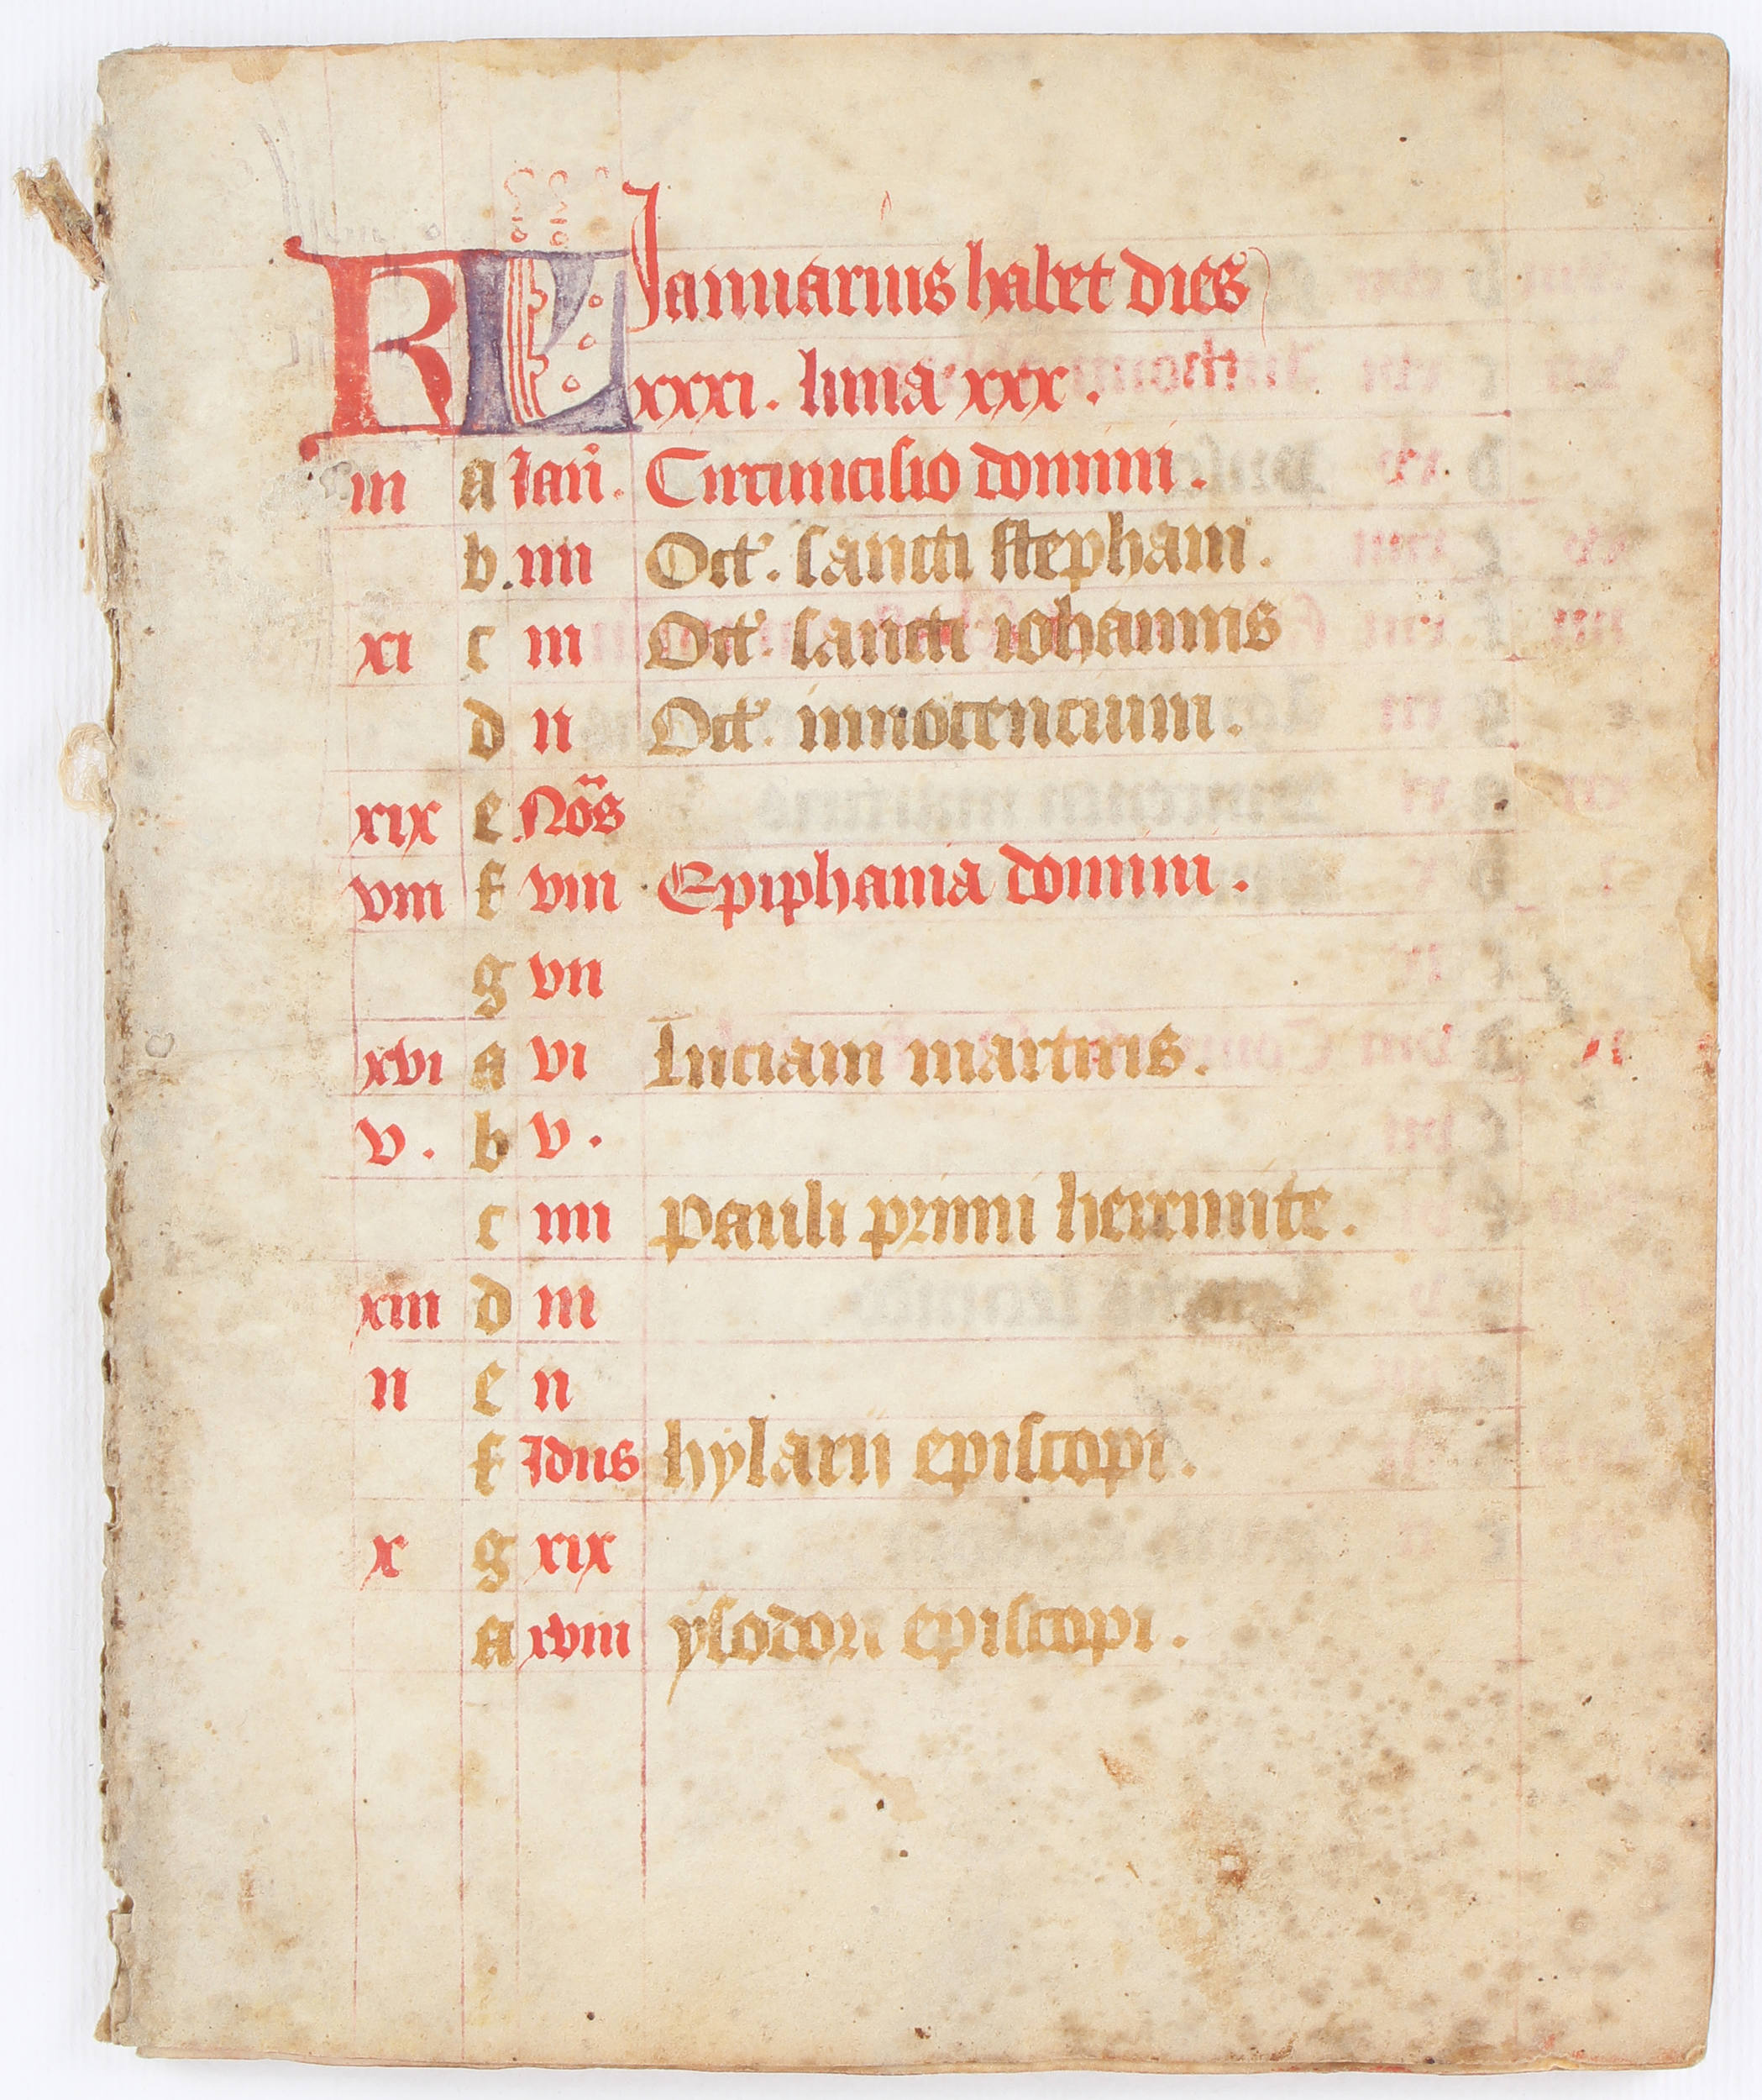 KL Ianuarius habet dies
xxxi. luna xxx.
iii a Ian. Circumcisio domini.
b. iiii Oct. sancti stephani.
xi c iii Oct sancti iohannis
d ii Oct. innocencium.
xix e Nōs
viii f viii Epiphania domini.
g vii
xvi a vi Luciani martiris.
v. b v.
c iiii pauli primi heremite.
xiii d iii
ii e ii
f Idus hylarii episcopi.
x g xix
a xviii ysodori episcopi.